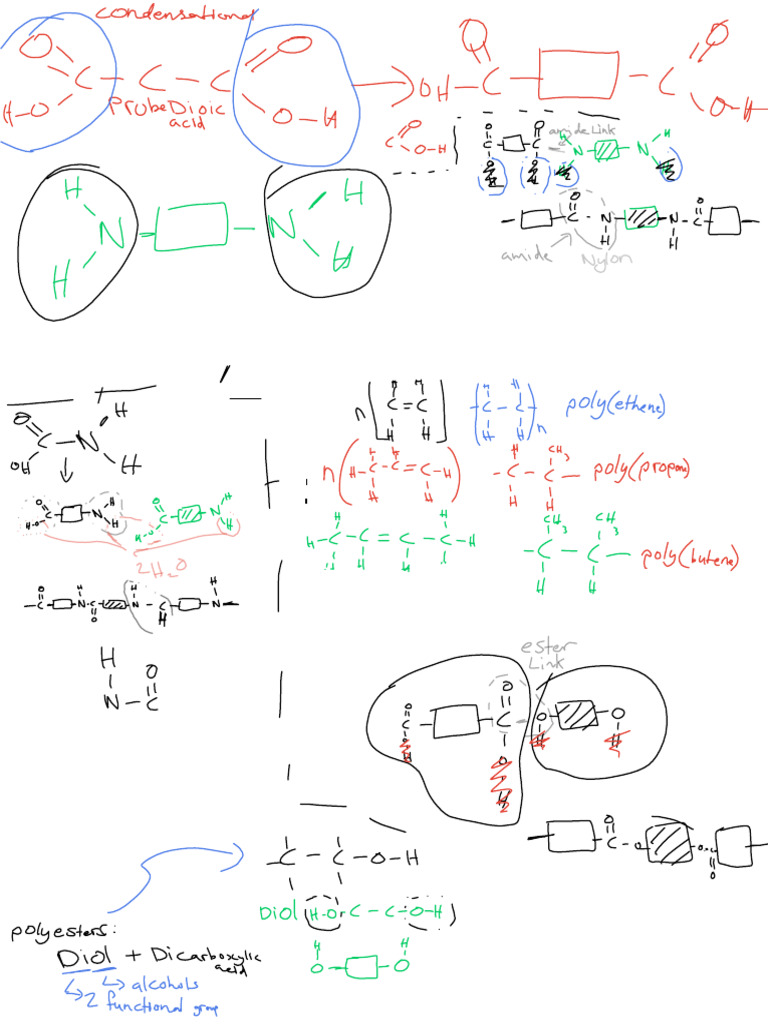 condensational
O O
C – C – C
H–O O–H
ProbeDioic
acid
O O
OH–C C
O–H
C O O–H
amide link
H H
N N
H H
O O H H
C N N C
H H
amide Nylon
O H
C N
OH H
O H O H
C N C N
H-O H H-O H
2H2O
O H H H
C N C N C N
O H
H O
N – C
n H H
C=C
H H
H H
C – C n
H H
poly(ethene)
n H H
H–C–C=C–H
H H
H CH3
–C–C–
H H
poly(propane)
H H
H–C–C=C–C–H
H H
CH3 CH3
–C–C–
H H
poly(butene)
ester
Link
O O
C C O O
O H H
H
O
C O O C
O
–C–C–O–H
Diol H-O-C–C-O-H
polyesters:
H H
O O
Diol + Dicarboxylic
acid
↳ alcohols
↳ 2 functional group